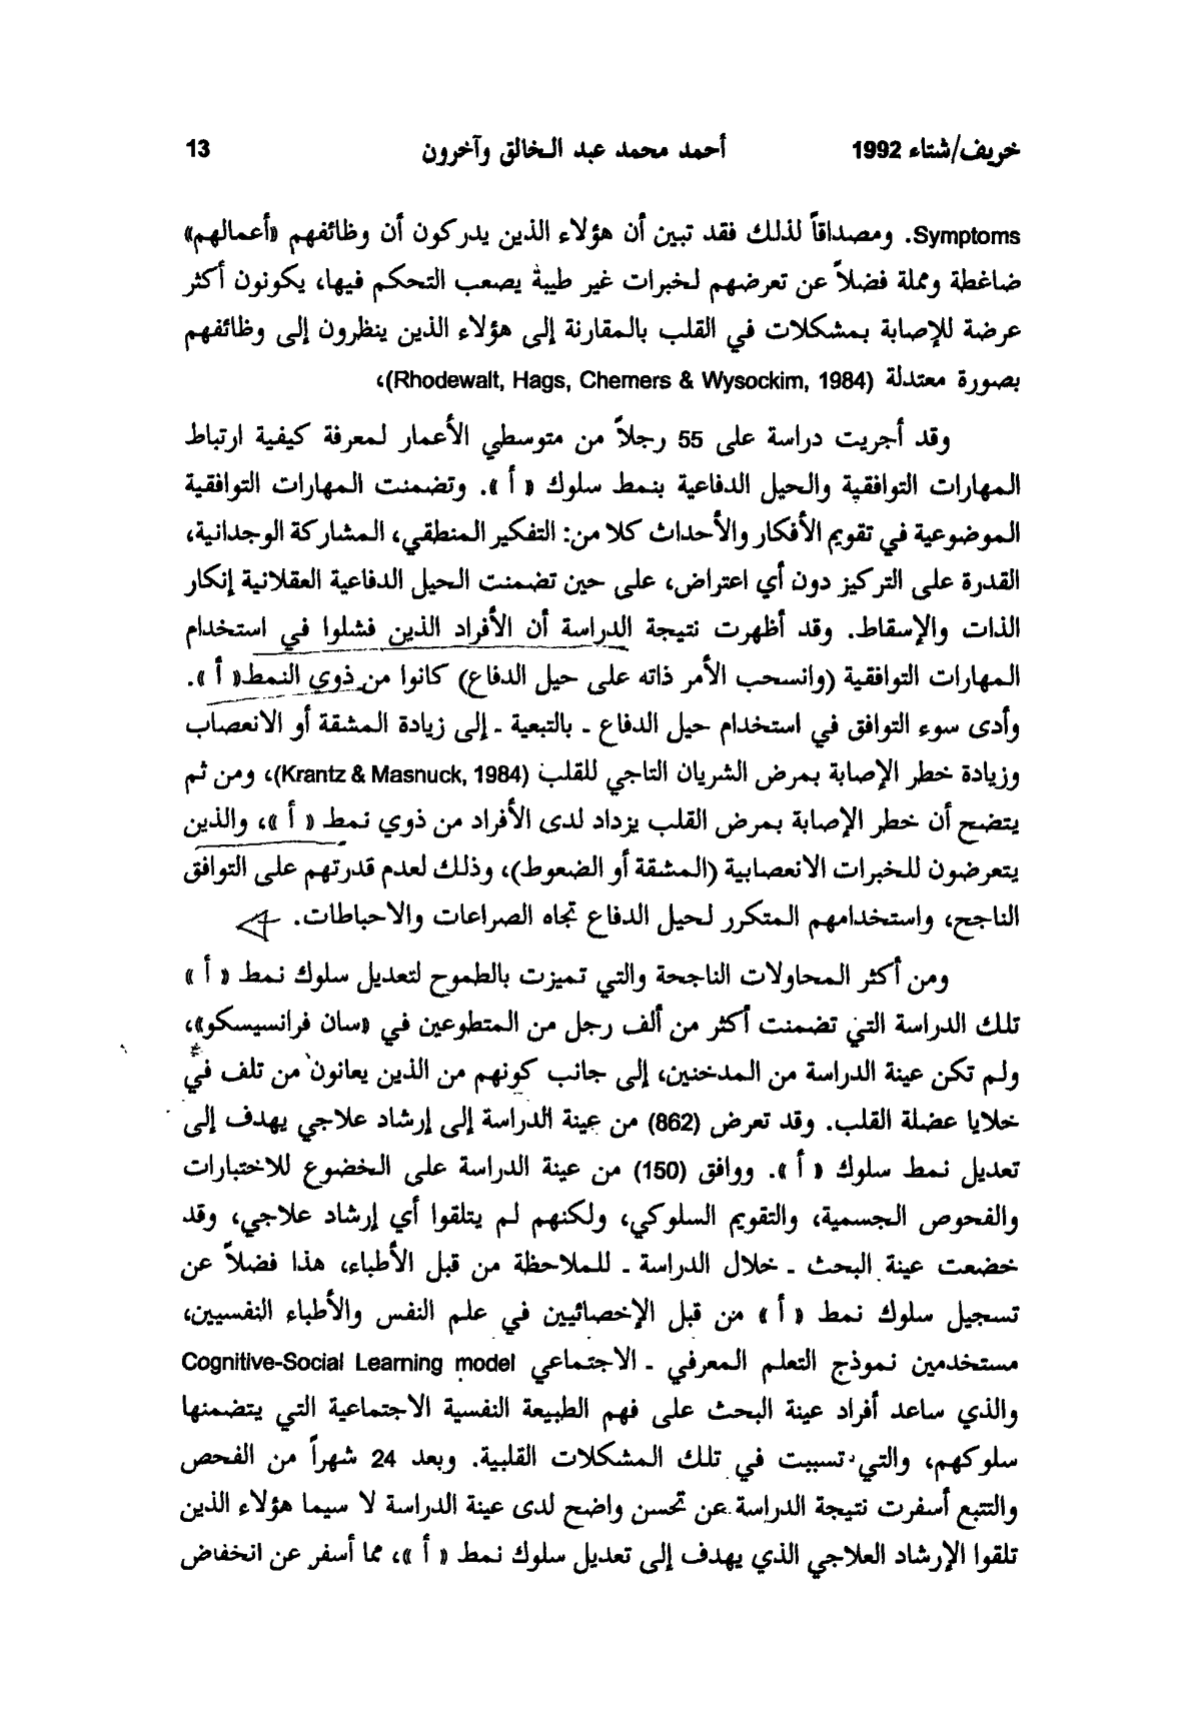 خريف/شتاء 1992 أحمد محمد عبد الخالق وآخرون 13
Symptoms. ومصداقاً لذلك فقد تبين أن هؤلاء الذين يدركون أن وظائفهم «أعمالهم»
ضاغطة ومملة فضلاً عن تعرضهم لخبرات غير طيبة يصعب التحكم فيها، يكونون أكثر
عرضة للإصابة بمشكلات في القلب بالمقارنة إلى هؤلاء الذين ينظرون إلى وظائفهم
بصورة معتدلة (Rhodewalt, Hags, Chemers & Wysockim, 1984)،
وقد أجريت دراسة على 55 رجلاً من متوسطي الأعمار لمعرفة كيفية ارتباط
المهارات التوافقية والحيل الدفاعية بنمط سلوك « أ ». وتضمنت المهارات التوافقية
الموضوعية في تقويم الأفكار والأحداث كلا من: التفكير المنطقي، المشاركة الوجدانية،
القدرة على التركيز دون أي اعتراض، على حين تضمنت الحيل الدفاعية العقلانية إنكار
الذات والإسقاط. وقد أظهرت نتيجة الدراسة أن الأفراد الذين فشلوا في استخدام
المهارات التوافقية (وانسحب الأمر ذاته على حيل الدفاع) كانوا من ذوي النمط« أ ».
وأدى سوء التوافق في استخدام حيل الدفاع ـ بالتبعية ـ إلى زيادة المشقة أو الانعصاب
وزيادة خطر الإصابة بمرض الشريان التاجي للقلب (Krantz & Masnuck, 1984)، ومن ثم
يتضح أن خطر الإصابة بمرض القلب يزداد لدى الأفراد من ذوي نمط « أ »، والذين
يتعرضون للخبرات الانعصابية (المشقة أو الضعوط)، وذلك لعدم قدرتهم على التوافق
الناجح، واستخدامهم المتكرر لحيل الدفاع تجاه الصراعات والاحباطات.
ومن أكثر المحاولات الناجحة والتي تميزت بالطموح لتعديل سلوك نمط « أ »
تلك الدراسة التي تضمنت أكثر من ألف رجل من المتطوعين في «سان فرانسيسكو»،
ولم تكن عينة الدراسة من المدخنين، إلى جانب كونهم من الذين يعانون من تلف في
خلايا عضلة القلب. وقد تعرض (862) من عينة الدراسة إلى إرشاد علاجي يهدف إلى
تعديل نمط سلوك « أ ». ووافق (150) من عينة الدراسة على الخضوع للاختبارات
والفحوص الجسمية، والتقويم السلوكي، ولكنهم لم يتلقوا أي إرشاد علاجي، وقد
خضعت عينة البحث ـ خلال الدراسة ـ للملاحظة من قبل الأطباء، هذا فضلاً عن
تسجيل سلوك نمط « أ » من قبل الإخصائيين في علم النفس والأطباء النفسيين،
مستخدمين نموذج التعلم المعرفي ـ الاجتماعي Cognitive-Social Learning model
والذي ساعد أفراد عينة البحث على فهم الطبيعة النفسية الاجتماعية التي يتضمنها
سلوكهم، والتي تسببت في تلك المشكلات القلبية. وبعد 24 شهراً من الفحص
والتتبع أسفرت نتيجة الدراسة عن تحسن واضح لدى عينة الدراسة لا سيما هؤلاء الذين
تلقوا الإرشاد العلاجي الذي يهدف إلى تعديل سلوك نمط « أ »، مما أسفر عن انخفاض